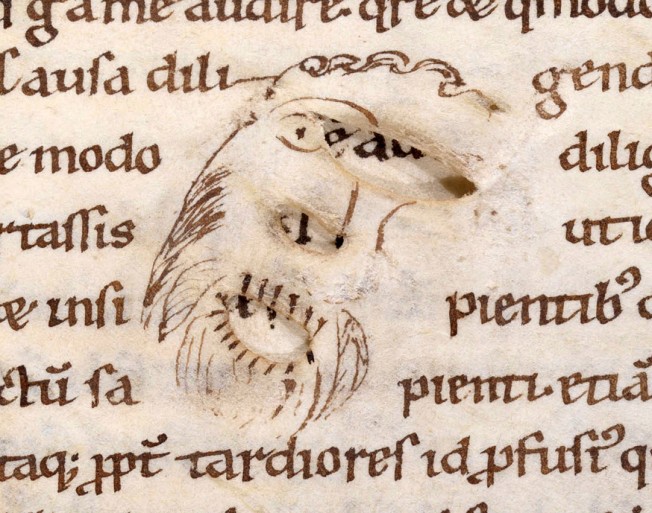 game audire. qre & qmodo
Causa dili gend
e modo dilig
rtassis uti
& insi pientib⁹
ctũ sa pienti. etiã
taq; ꝓpt̃ tardiores id ꝓfusi⁹ q